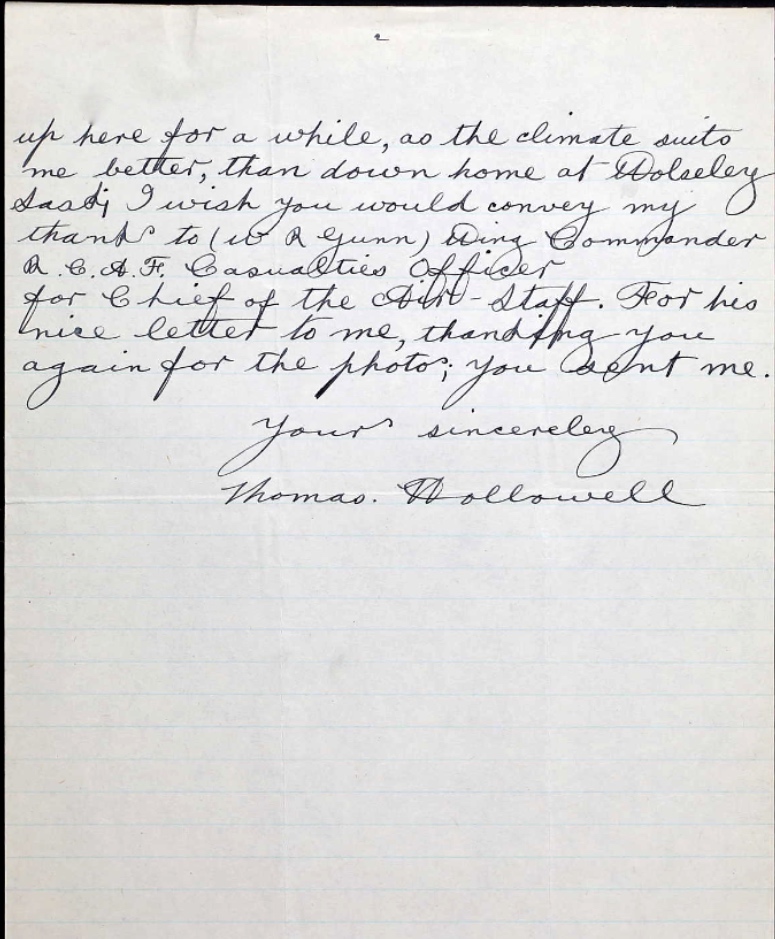 2
up here for a while, as the climate suits
me better, than down home at Wolseley
Sask; I wish you would convey my
thanks to (W R Gunn) Wing Commander
R. C. A. F. Casualties Officer
for Chief of the Air-Staff. For his
nice letter to me, thanking you
again for the photos; you sent me.
Yours sincereley
Thomas. Hollowell